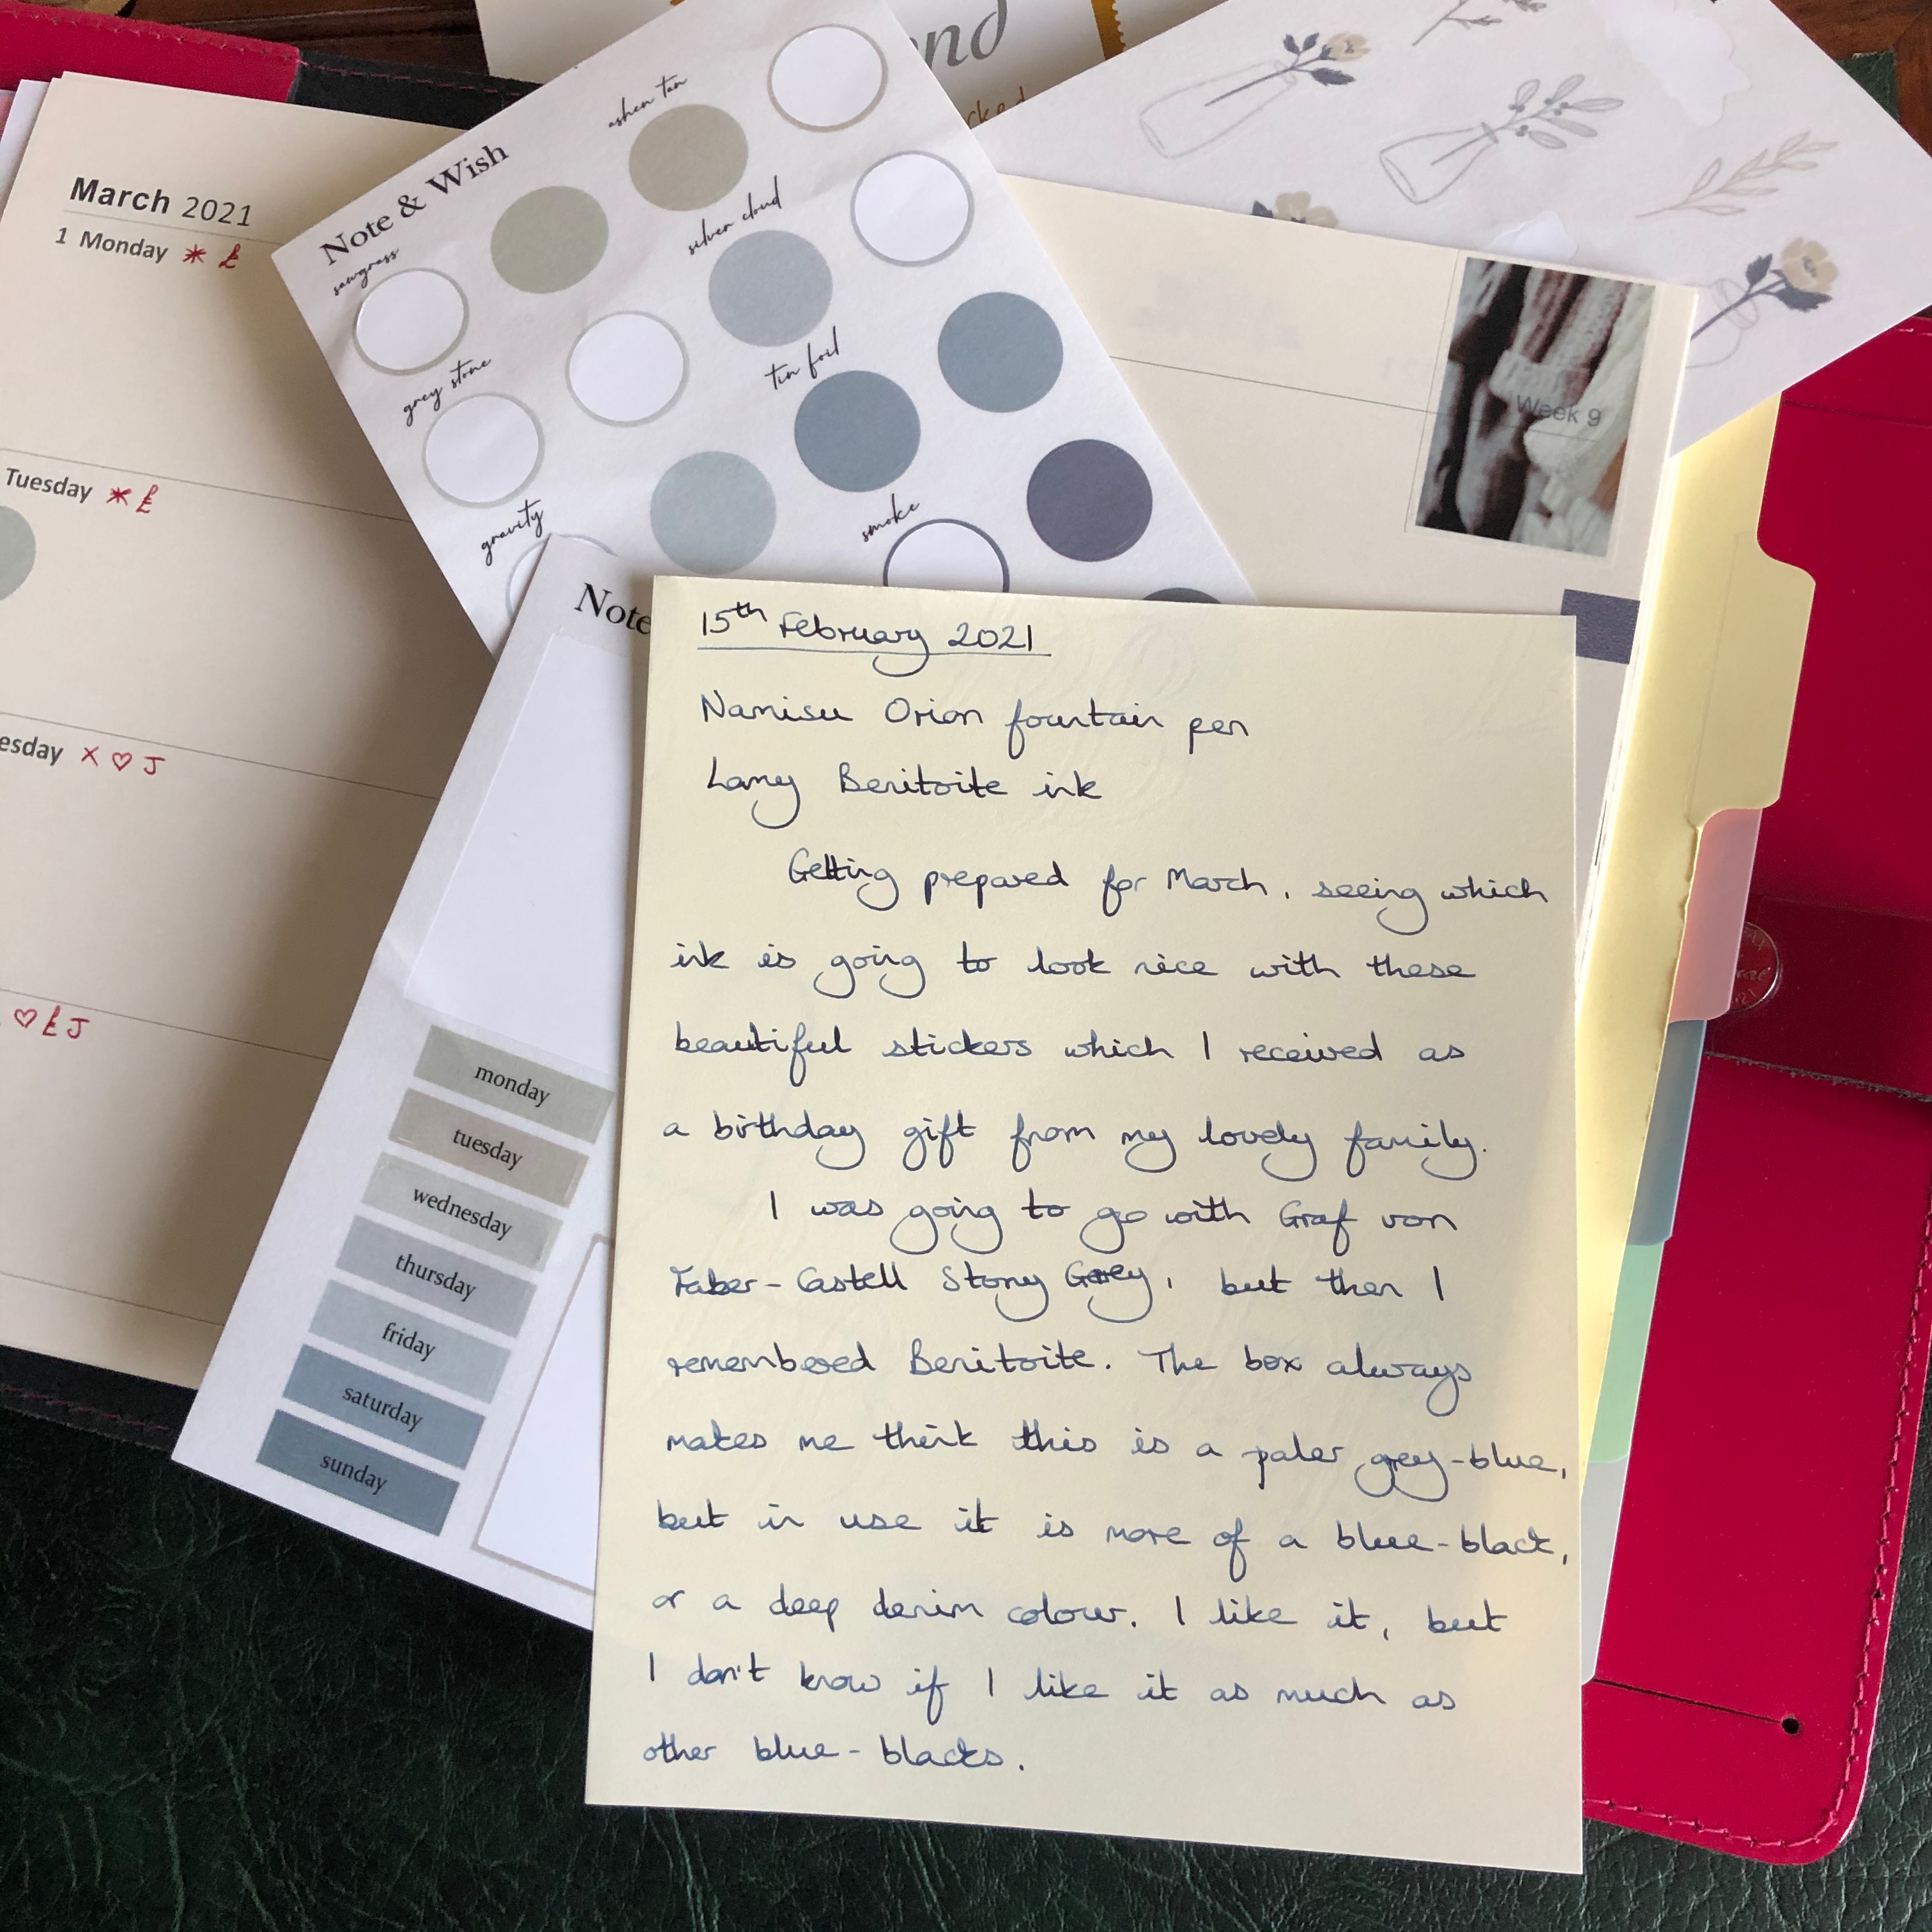 nd
cked
March 2021
1 Monday * £
Tuesday * £
esday x ♡ J
♡ £ J
Note & Wish
sawgrass
ashen tan
grey stone
silver cloud
gravity
tin foil
smoke
Week 9
Note
monday
tuesday
wednesday
thursday
friday
saturday
sunday
15th February 2021
Namisu Orion fountain pen
Lamy Benitoite ink
Getting prepared for March, seeing which
ink is going to look nice with these
beautiful stickers which I received as
a birthday gift from my lovely family.
I was going to go with Graf von
Faber-Castell Stony Grey, but then I
remembered Benitoite. The box always
makes me think this is a paler grey-blue,
but in use it is more of a blue-black,
or a deep denim colour. I like it, but
I don't know if I like it as much as
other blue-blacks.